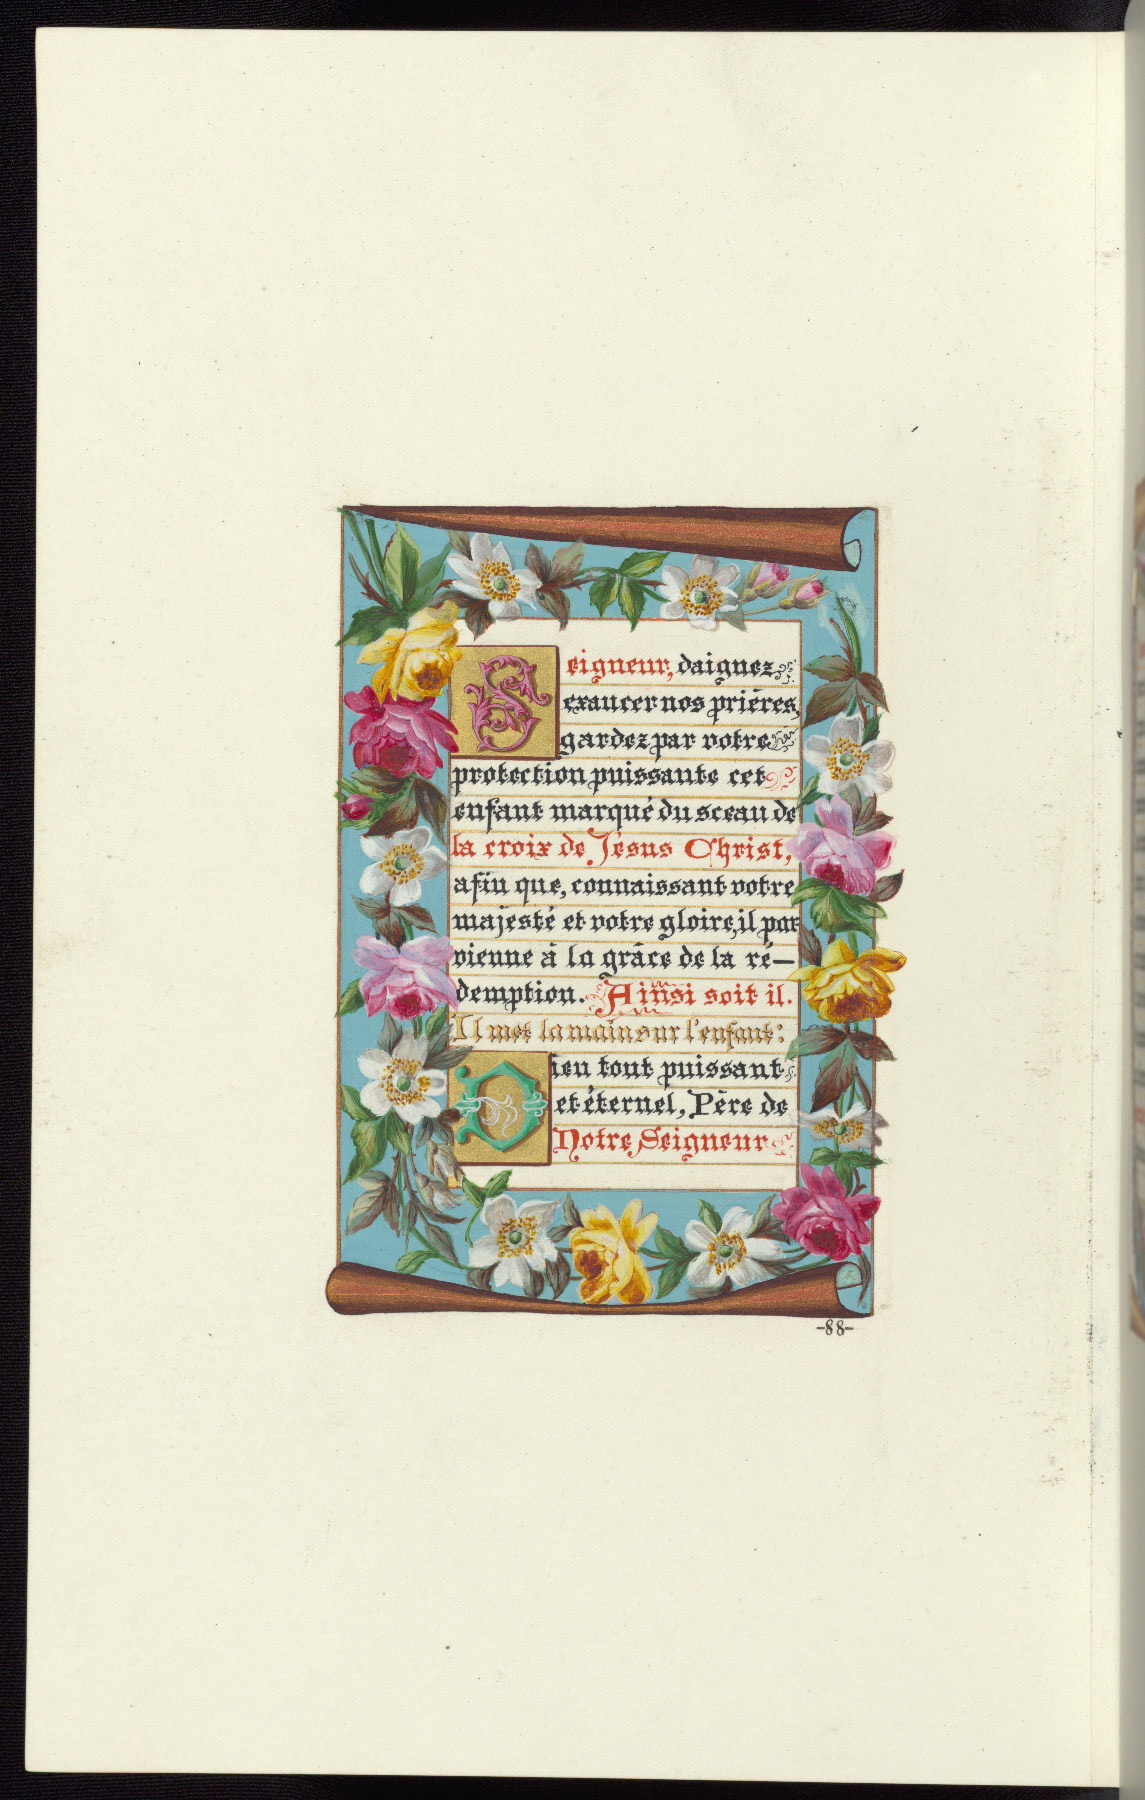 Seigneur, daignez
exaucer nos prières,
gardez par votre
protection puissante cet
enfant marqué du sceau de
la croix de Jésus Christ,
afin que, connaissant votre
majesté et votre gloire, il par
vienne à la grâce de la ré-
demption. Ainsi soit il.
Il met la main sur l'enfant:
Dieu tout puissant
et éternel, Père de
Notre Seigneur
-88-